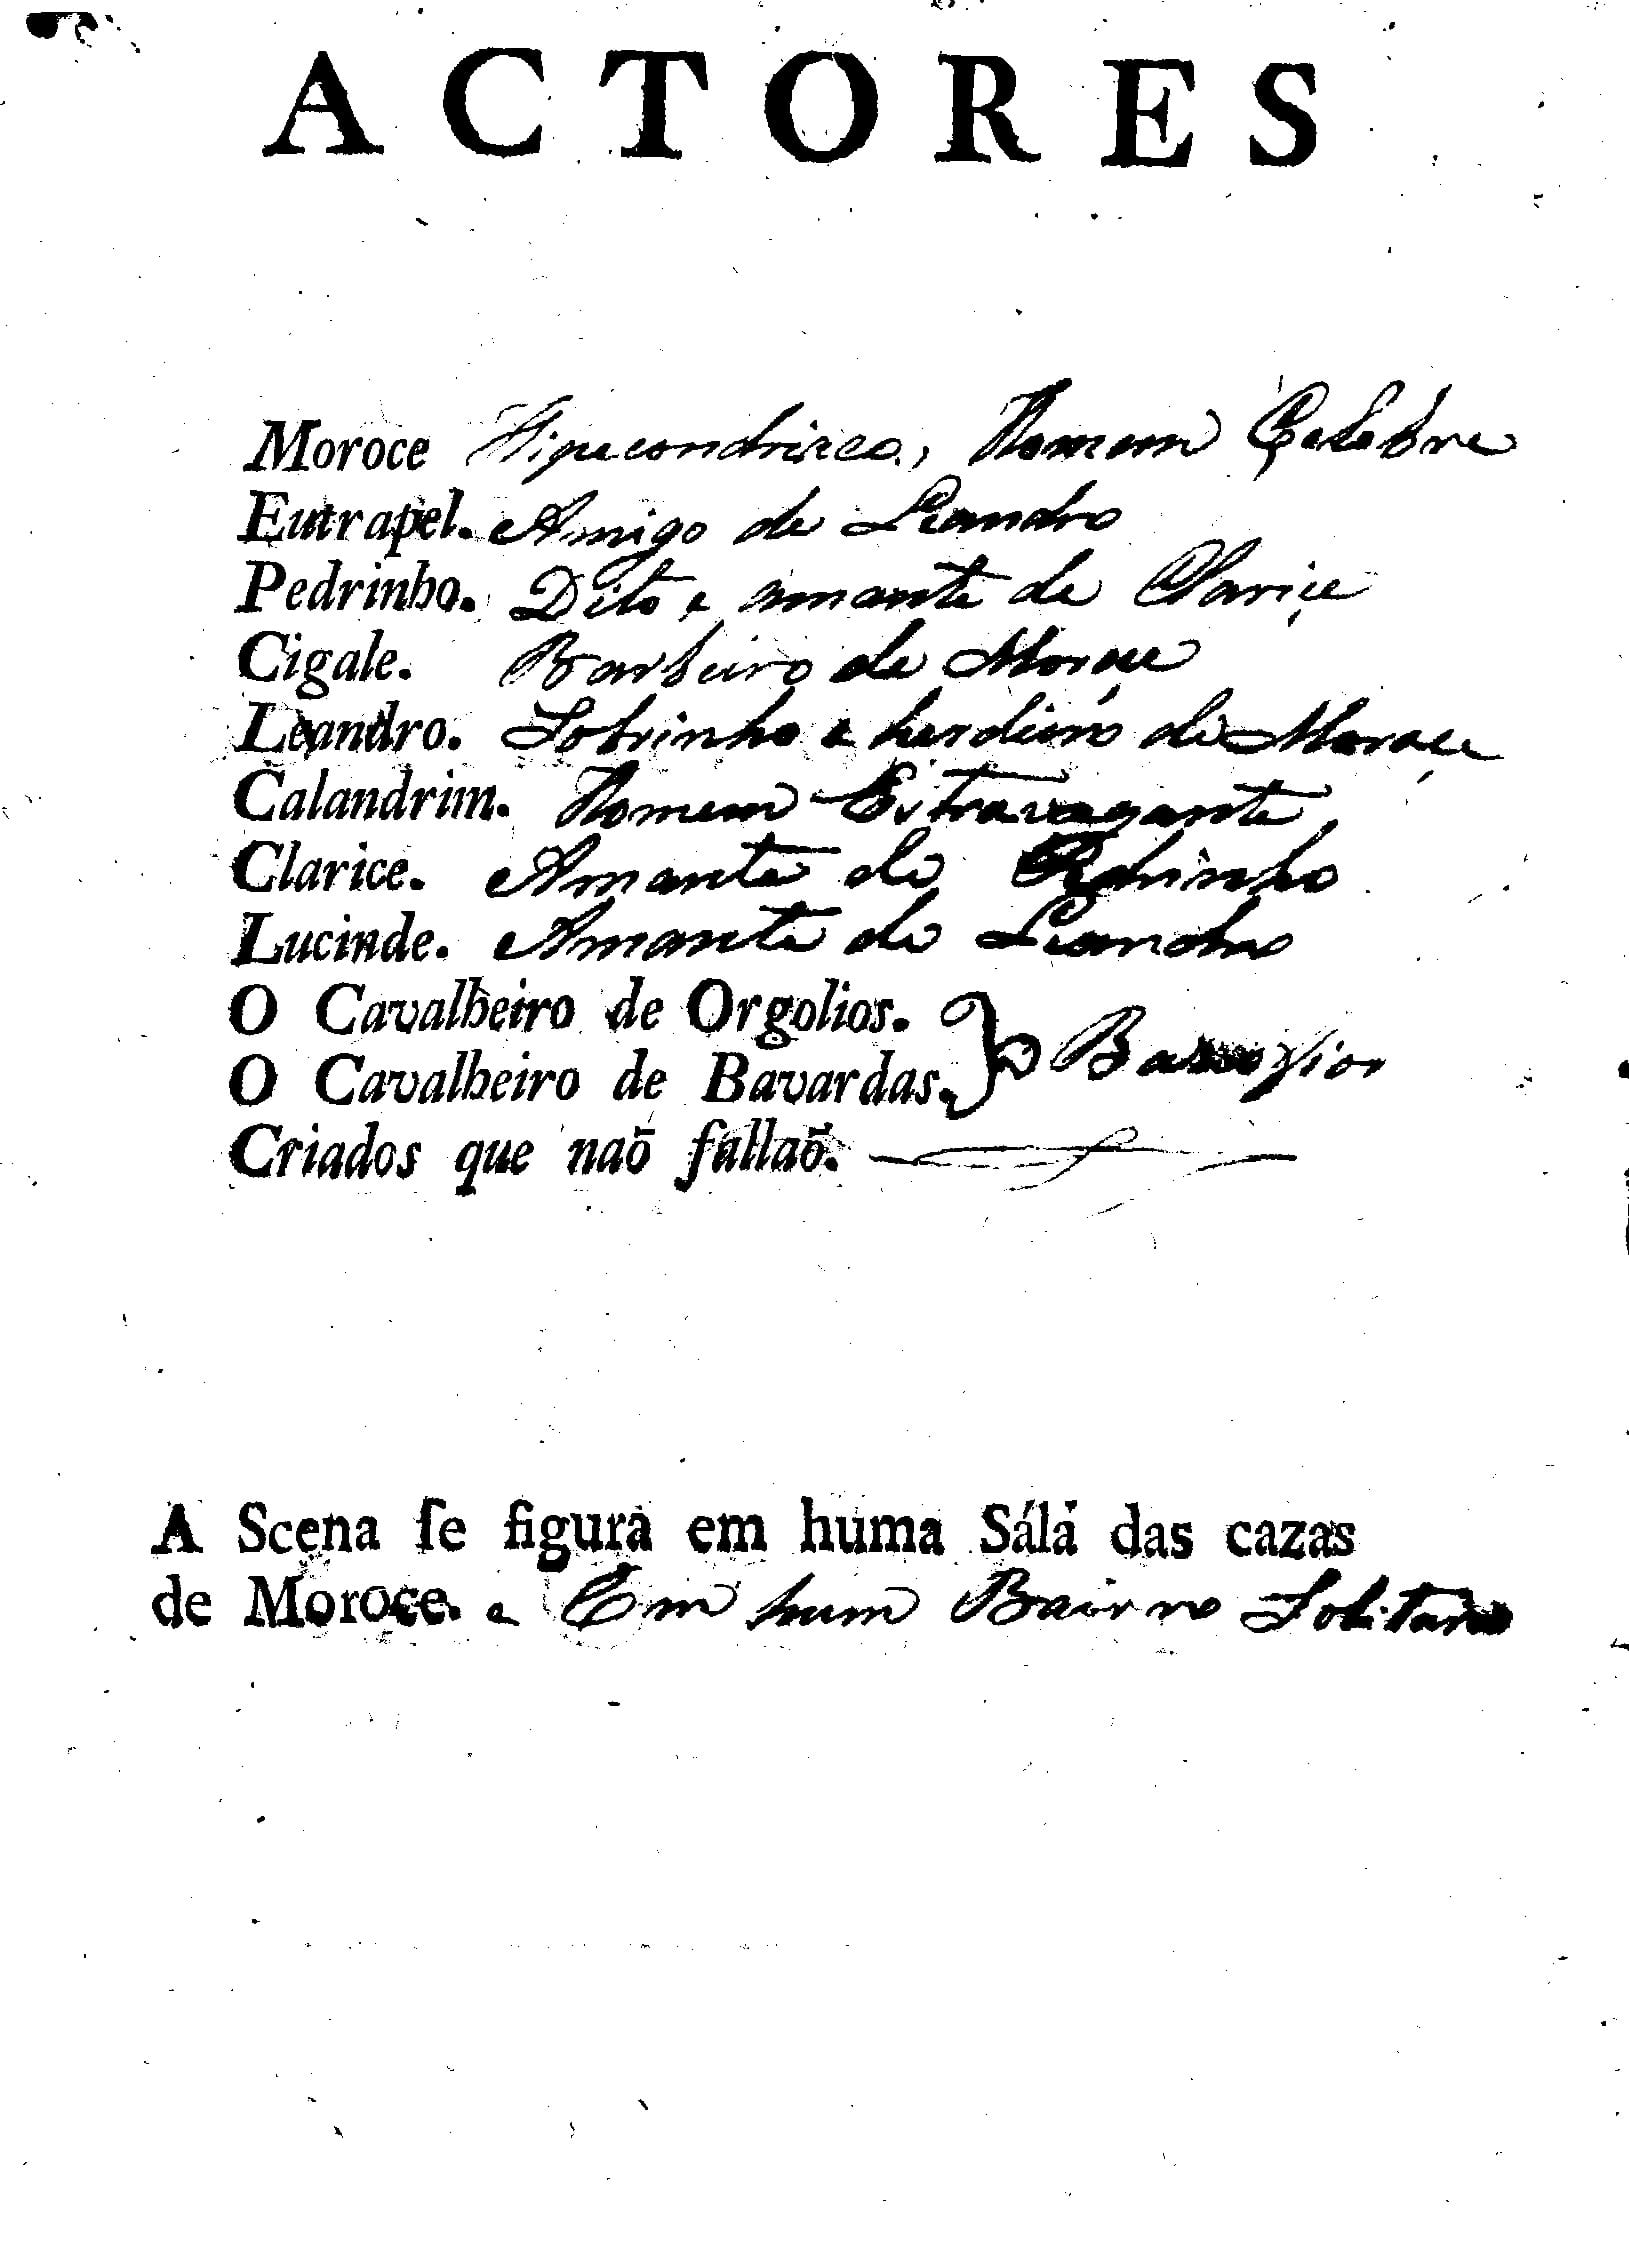 ACTORES
Moroce Hipecondriaco, Homem Celebre
Eutrapel. Amigo de Leandro
Pedrinho. Dito e amante de Clariçe
Cigale. Barbeiro de Moroçe
Leandro. Sobrinho e herdeiro de Moroçe
Calandrim. Homem Extravagante
Clarice. Amante de Pedrinho
Lucinde. Amante de Leandro
O Cavalheiro de Orgolios.
O Cavalheiro de Bavardas.
Criados que naõ fallaõ.
A Scena ſe figura em huma Sálá das cazas
de Moroçe. e Em hum Bairro Solitario